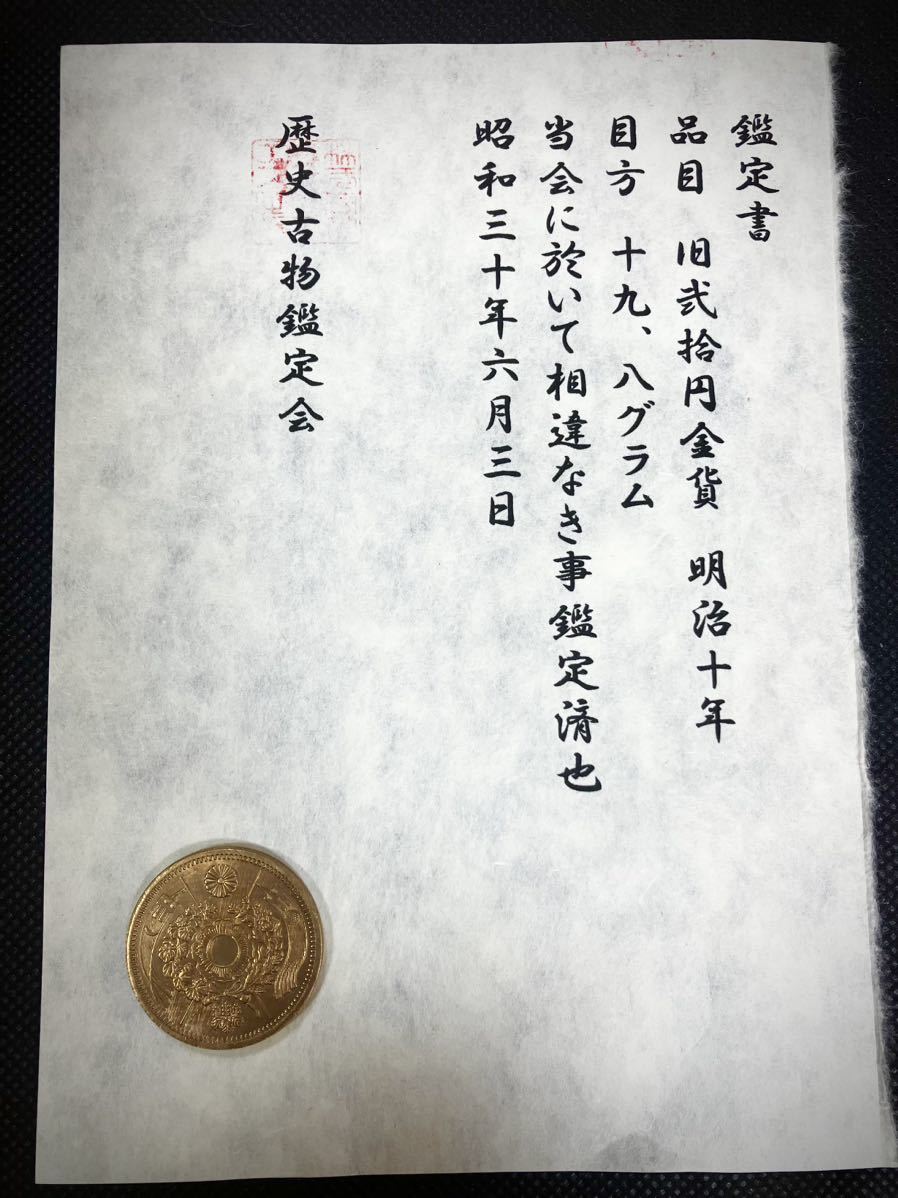 鑑定書
品目　旧弐拾円金貨　明治十年
目方　十九、八グラム
当会に於いて相違なき事鑑定済也
昭和三十年六月三日
歴史古物鑑定会